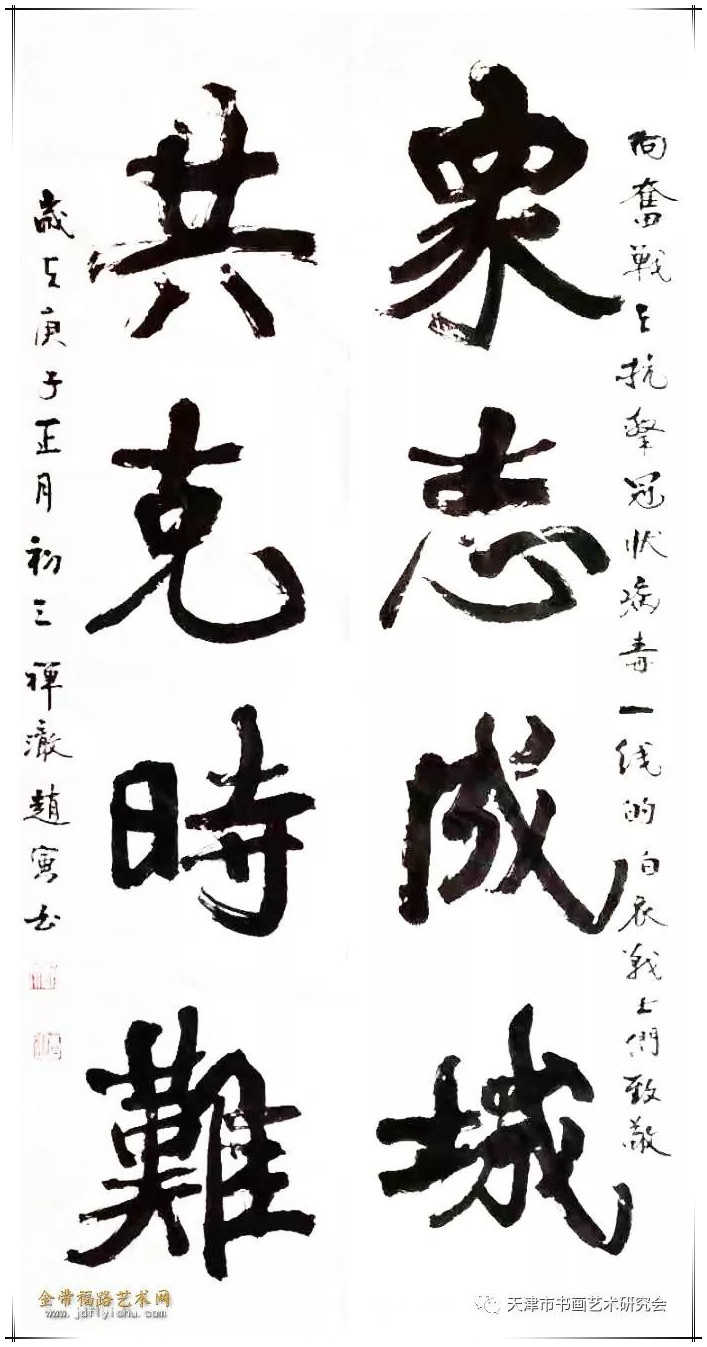 向奮戰在抗擊冠狀病毒一线的白衣戰士們致敬
衆志成城
共克時難
歲在庚子正月初三禪澈趙寅书
金带福路艺术网
www.jdflyishu.com
天津市书画艺术研究会